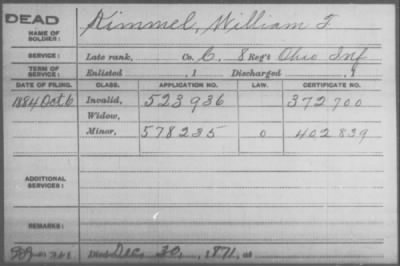 DEAD
NAME OF SOLDIER: Kimmel, William T.
SERVICE: Late rank, Co. C. 8 Reg't Ohio Inf
TERM OF SERVICE: Enlisted , 1 Discharged , 1
DATE OF FILING. CLASS. APPLICATION NO. LAW. CERTIFICATE NO.
1884 Oct 6 Invalid, 523936 372700
Widow,
Minor, 578235 0 402839
ADDITIONAL SERVICES:
REMARKS:
Died Dec. 30, 1871, at